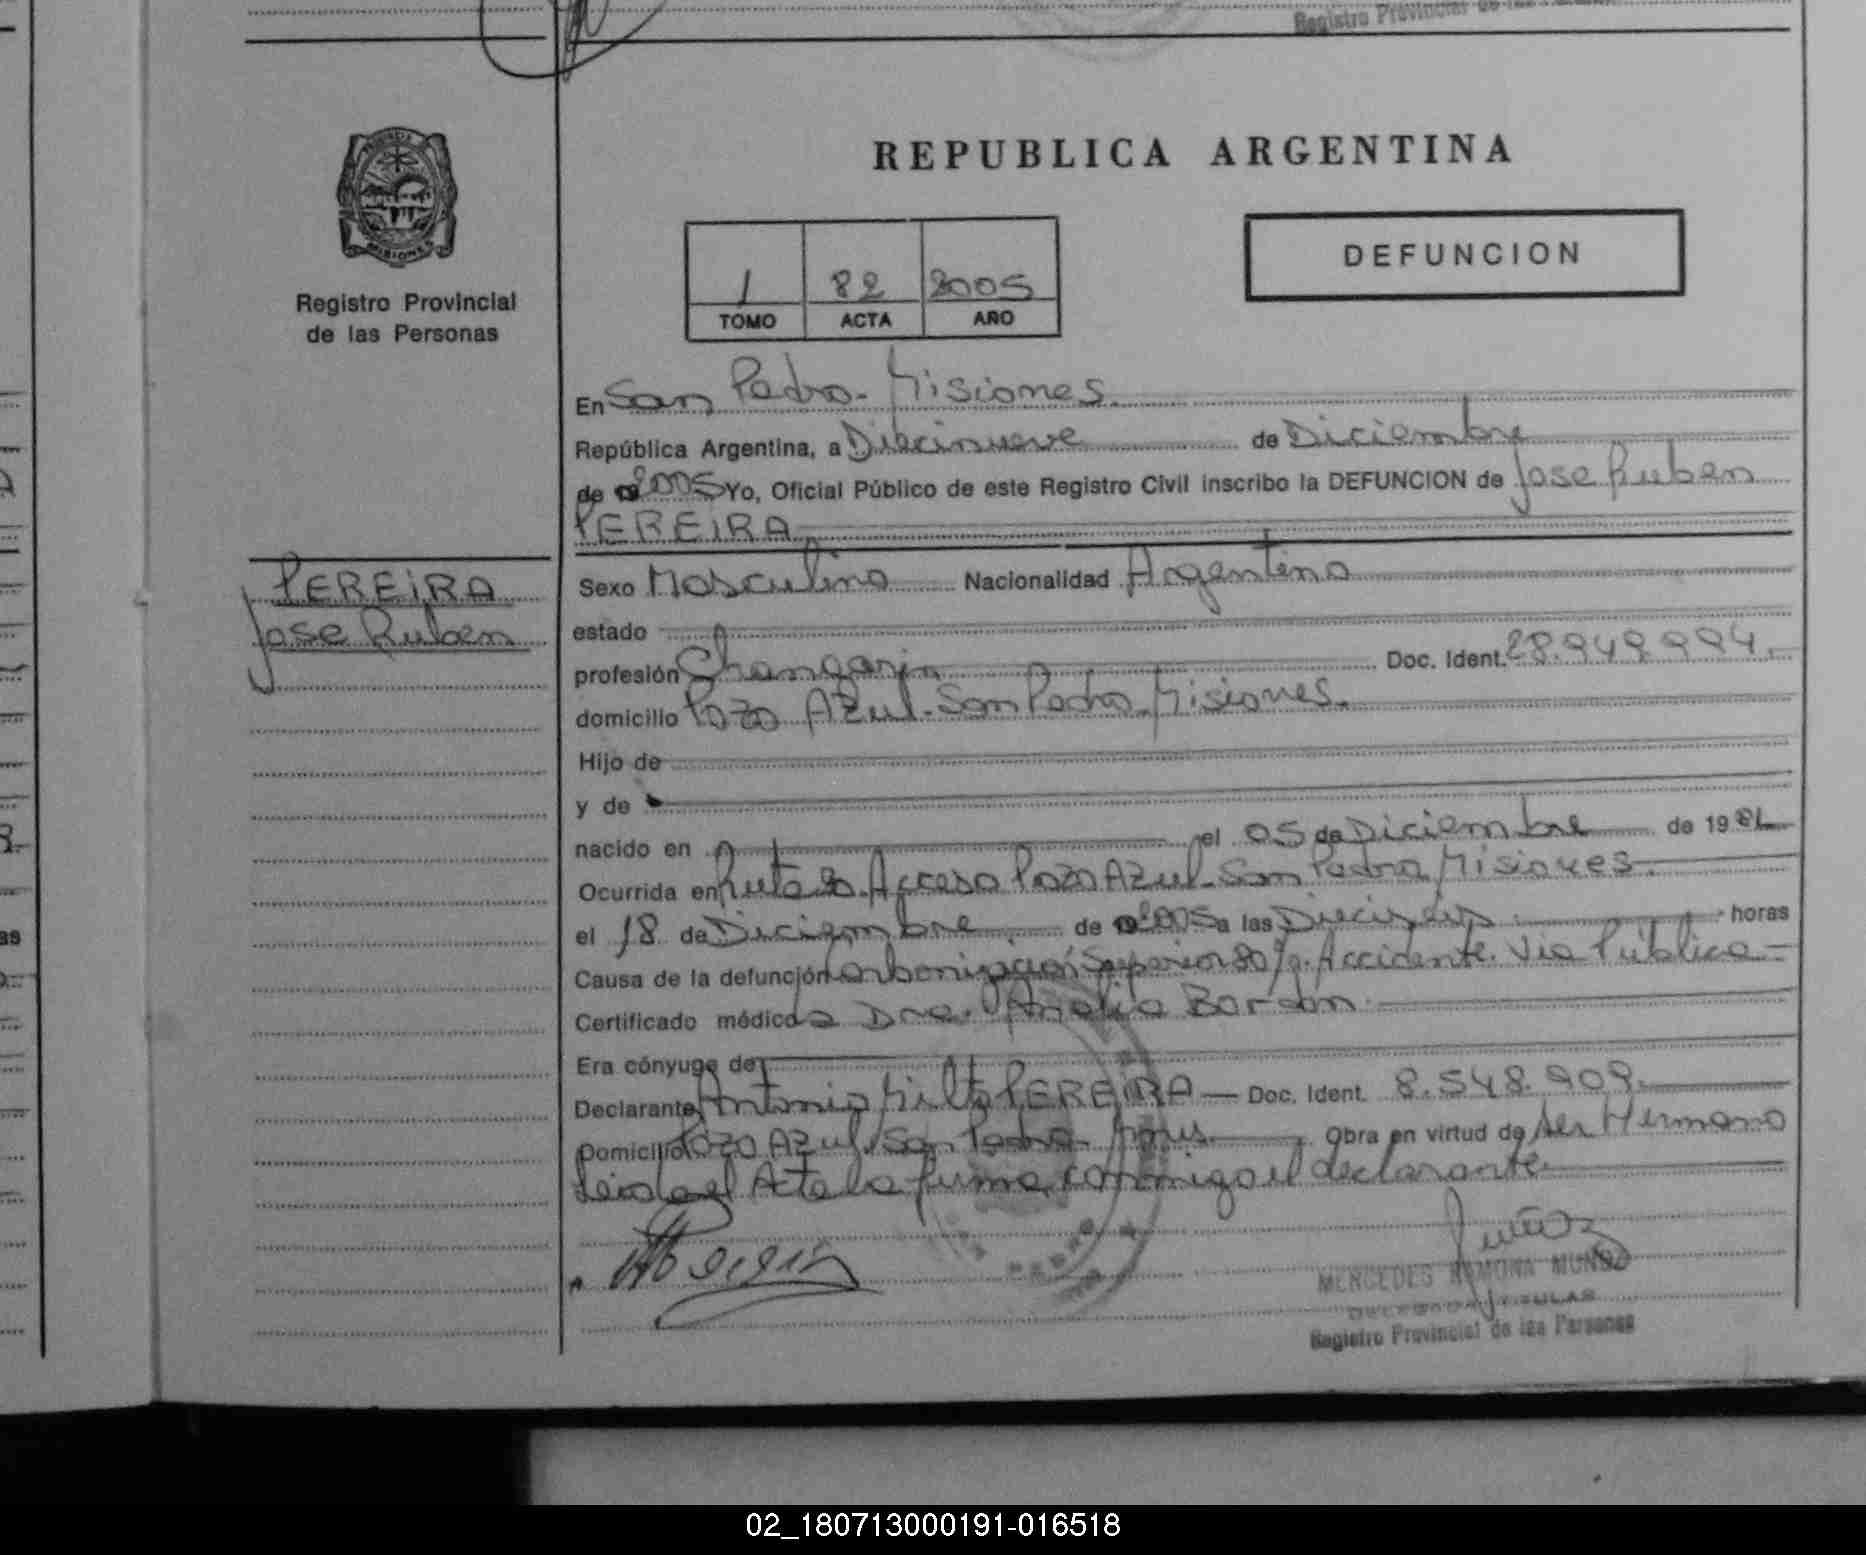 Registro Provincial de las
REPUBLICA ARGENTINA
PROVINCIA
MISIONES
Registro Provincial
de las Personas
DEFUNCION
1 82 2005
TOMO ACTA AÑO
En San Pedro - Misiones
República Argentina, a Diecinueve de Diciembre
de 2005 Yo, Oficial Público de este Registro Civil inscribo la DEFUNCION de Jose Ruben
PEREIRA
PEREIRA
Jose Ruben
Sexo Masculino Nacionalidad Argentina
estado
profesión Changarin Doc. Ident. 28.949.994.-
domicilio Pozo Azul - San Pedro - Misiones.
Hijo de
y de
nacido en el 05 de Diciembre de 19
Ocurrida en Ruta 20. Acceso Pozo Azul - San Pedro Misiones.
el 18 de Diciembre de 2005 a las horas
Causa de la defunción Carbonización Superior 80%. Accidente. Via Pública -
Certificado médico Dra. Analia Bordon
Era cónyuge de
Declarante Antonio PEREIRA — Doc. Ident. 8.548.909.
Domicilio Pozo Azul. San Pedro Obra en virtud de ser Hermano
Leida el Acta la firma conmigo el declarante
Muñoz
MERCEDES RAMONA MUÑOZ
DELEGADA TITULAR
Registro Provincial de las Personas
02_180713000191-016518